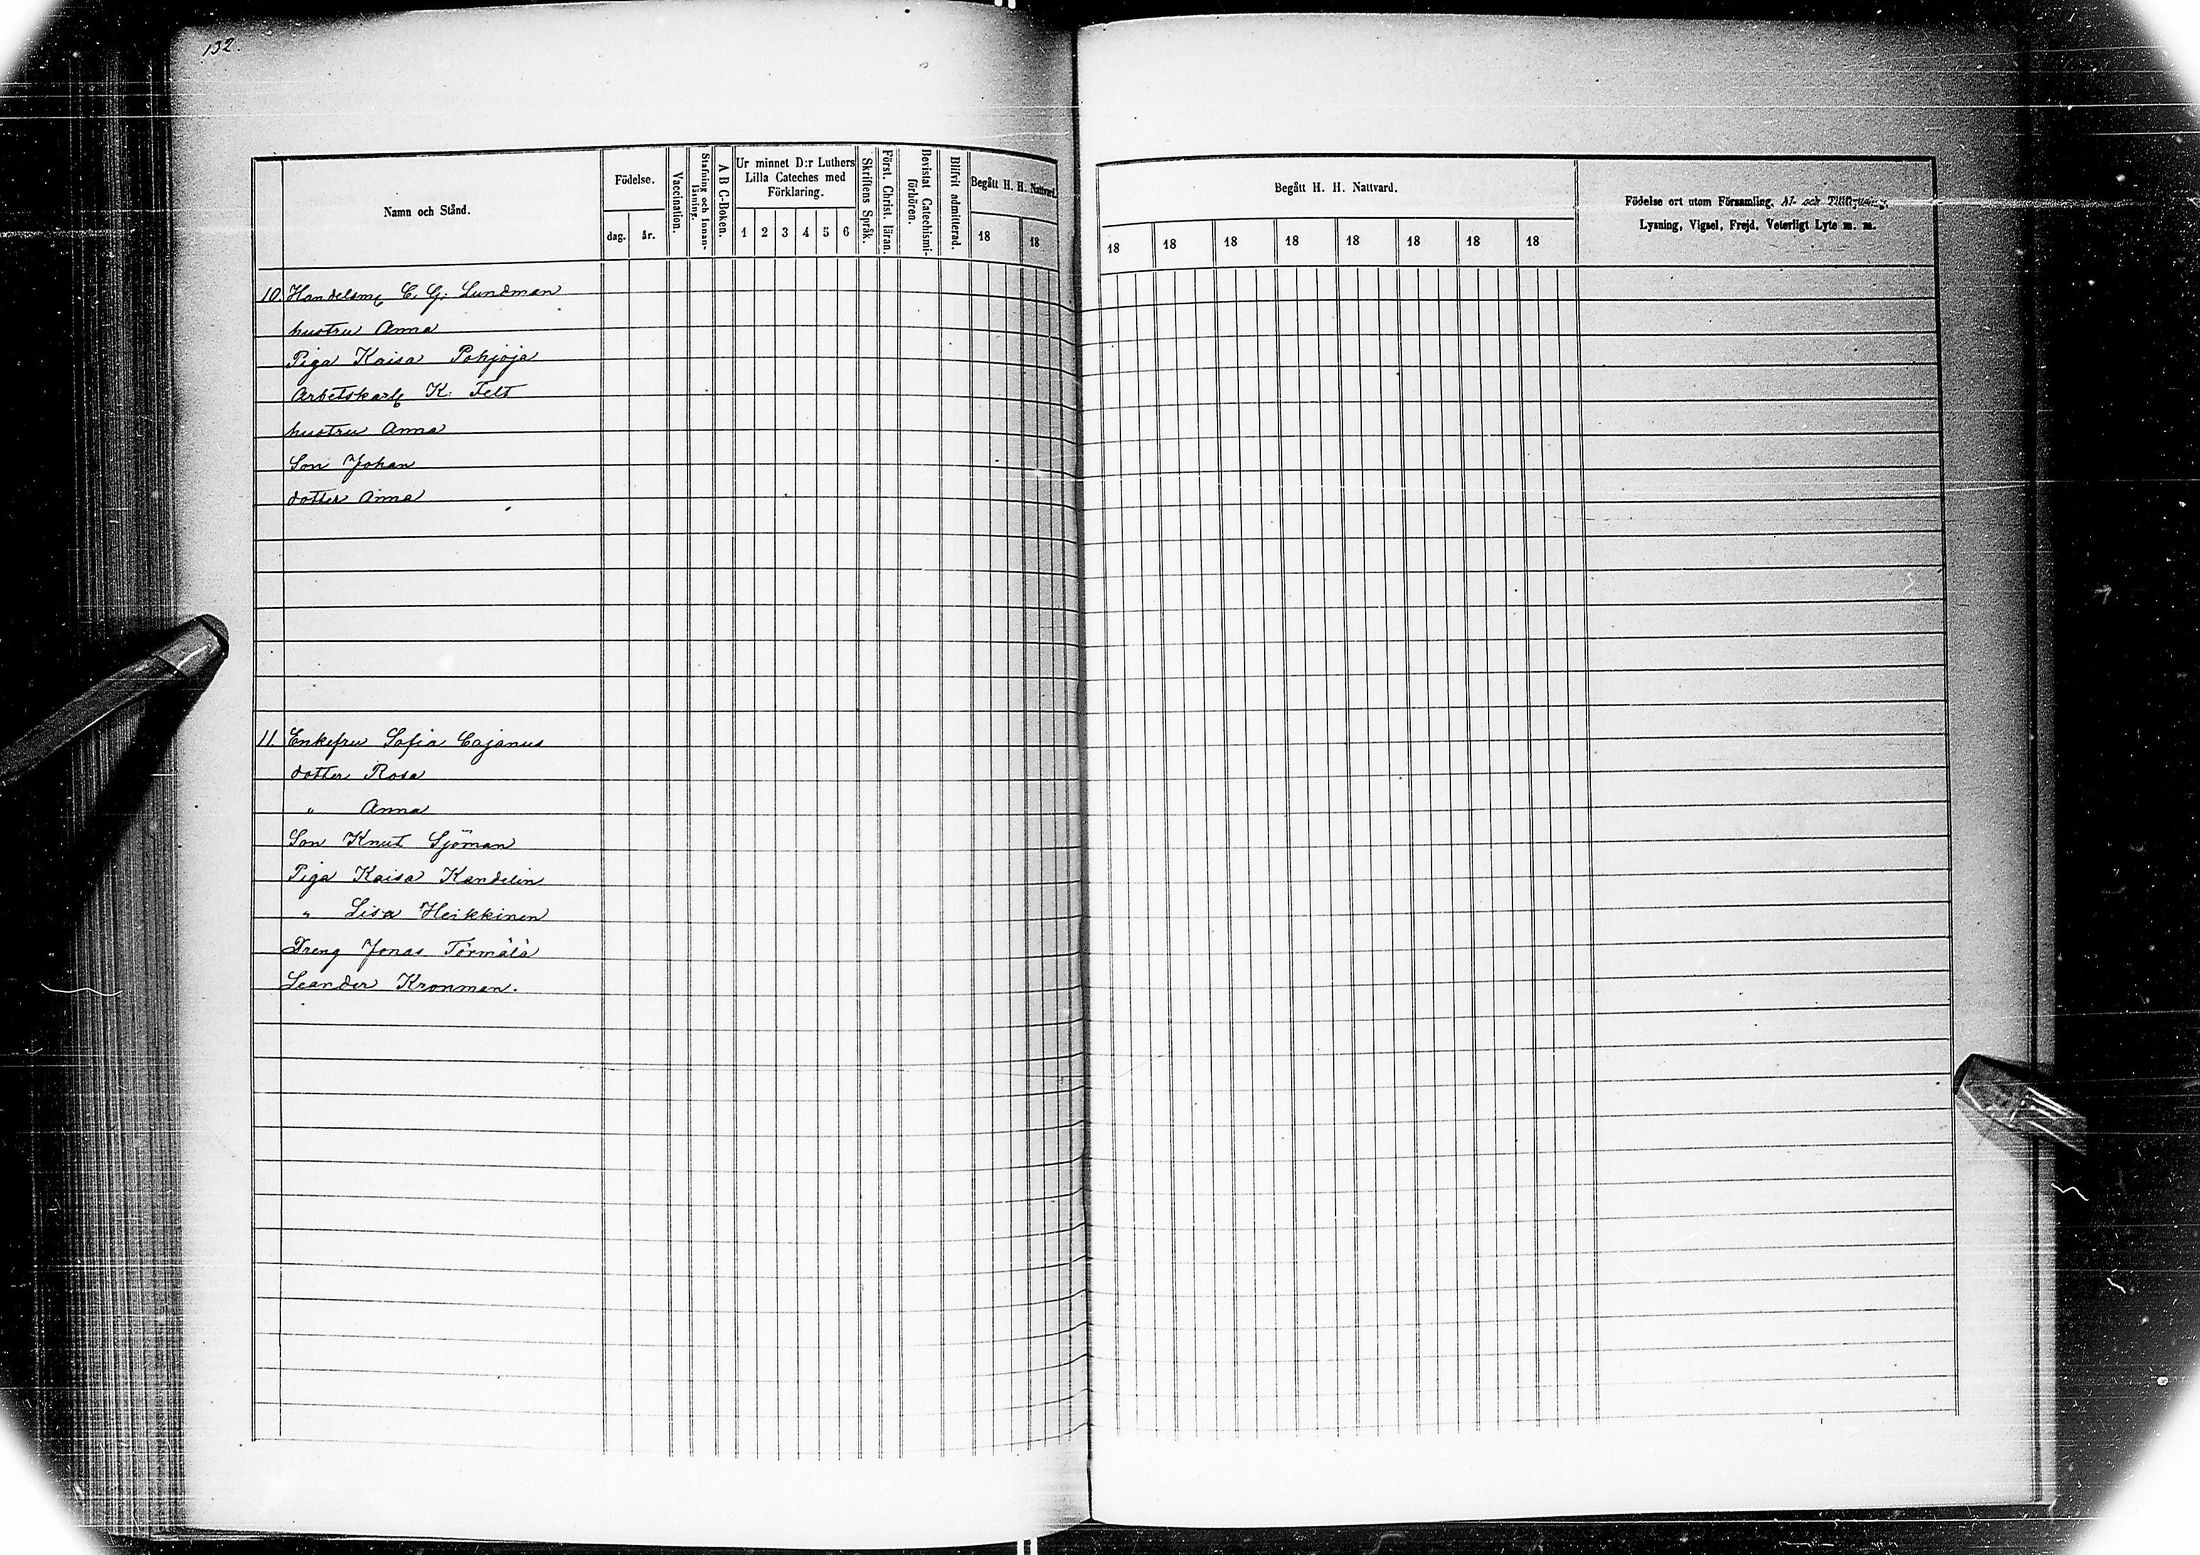 132.
Namn och Stånd.
Födelse.
dag. år.
Vaccination.
Stafning och Innan-
läsning.
A B C-Boken.
Ur minnet D:r Luthers
Lilla Cateches med
Förklaring.
1 2 3 4 5 6
Skriftens Språk.
Först. Christ. läran.
Bevistat Catechismi-
förhören.
Blifvit admitterad.
Begått H. H. Nattvard.
18 18
Begått H. H. Nattvard.
18 18 18 18 18 18 18 18
Födelse ort utom Församling, Af- och Tillflyttning,
Lysning, Vigsel, Frejd, Veterligt Lyte m. m.
10. Handelsm C. G: Lundman
hustru Anna
Piga Kaisa Pohjoja
Arbetskarl K: Felt
hustru Anna
Son Johan
dotter Anna
11. Enkefru Sofia Cajanus
dotter Rosa
" Anna
Son Knut Sjöman
Piga Kaisa Kandelin
" Lisa Heikkinen
Dreng Jonas Törmälä
Leander Kronman.